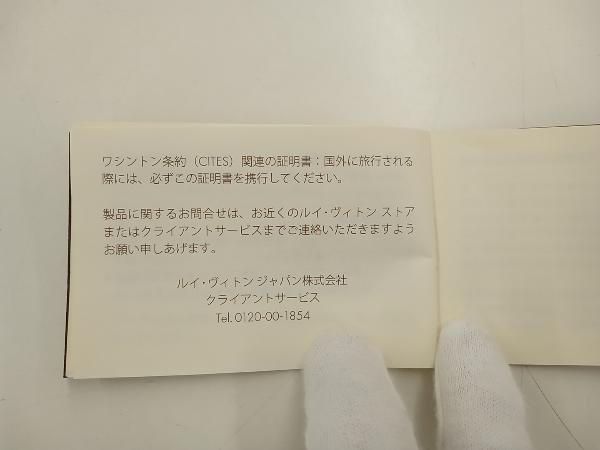 ワシントン条約（CITES）関連の証明書：国外に旅行される
際には、必ずこの証明書を携行してください。
製品に関するお問合せは、お近くのルイ・ヴィトン ストア
またはクライアントサービスまでご連絡いただきますよう
お願い申しあげます。
ルイ・ヴィトン ジャパン株式会社
クライアントサービス
Tel. 0120-00-1854